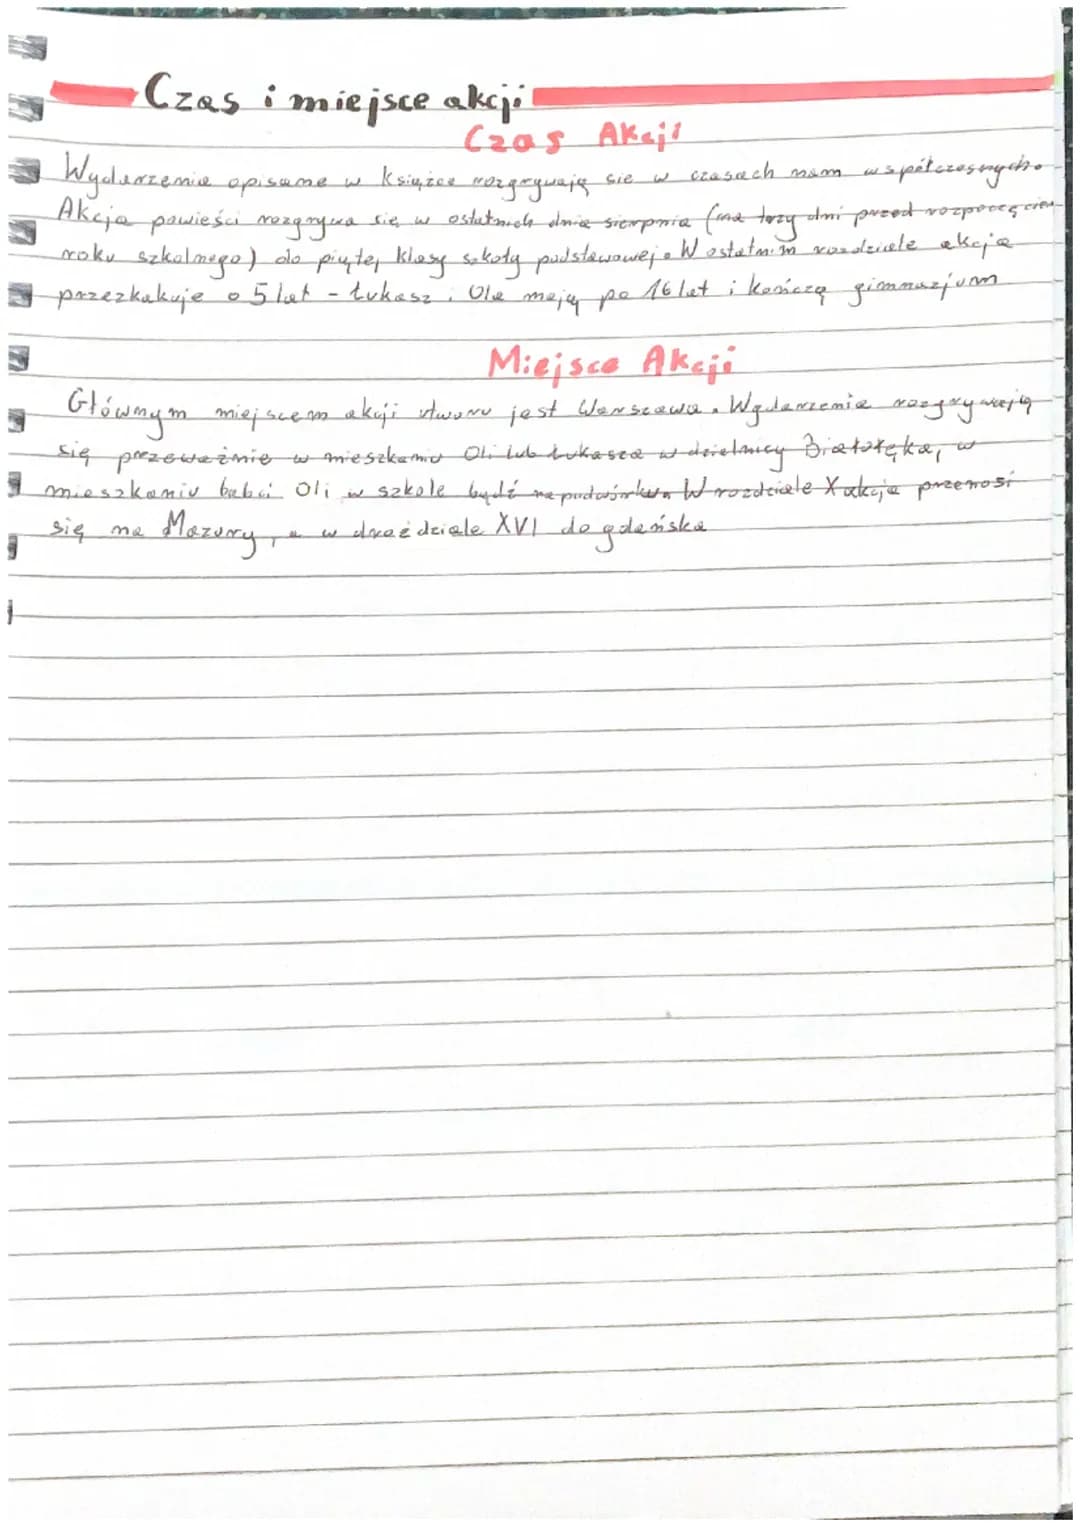 Czas i miejsce akcji
Czas Akcji
Wydarzenia opisane w książce rozgrywają sie w czasach nam współczesnych.
Akcja powieści rozgrywa się w ostatnich dnia sierpnia (na trzy dni przed rozpoczęciem
roku szkolnego) do piątej klasy szkoły podstawowej. W ostatnim rozdziele akcja
przezkakuje o 5 lat - Łukasz i Ola mają po 16 lat i kończą gimnazjum
Miejsce Akcji
Głównym miejscem akcji utworu jest Warszawa. Wydarzenia rozgrywają
się przeważnie w mieszkaniu Oli lub Łukasza w dzielnicy Białołęka, w
mieszkaniu babci Oli w szkole bądź na podwórku. W rozdziale X akcja przenosi
się na Mazury, a w drażdziale XVI do gdańska